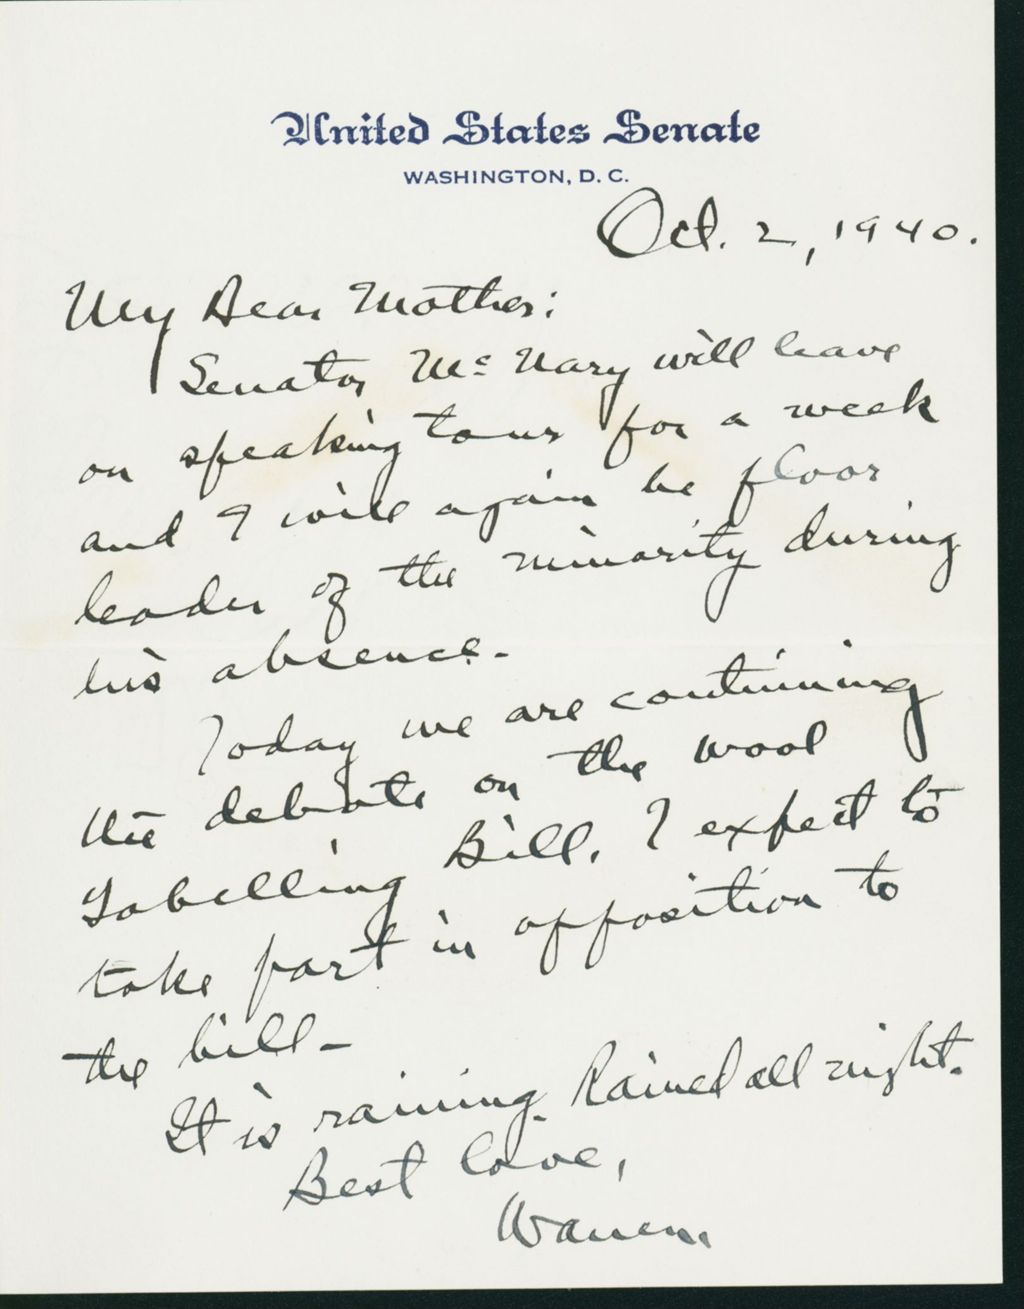 United States Senate
WASHINGTON, D. C.
Oct. 2, 1940.
My Dear Mother:
Senator McNary will leave
on speaking tour for a week
and I will again be floor
leader of the minority during
his absence.
Today we are continuing
the debate on the wool
Labelling Bill. I expect to
take part in opposition to
the bill-
It is raining. Rained all night.
Best love,
Warren